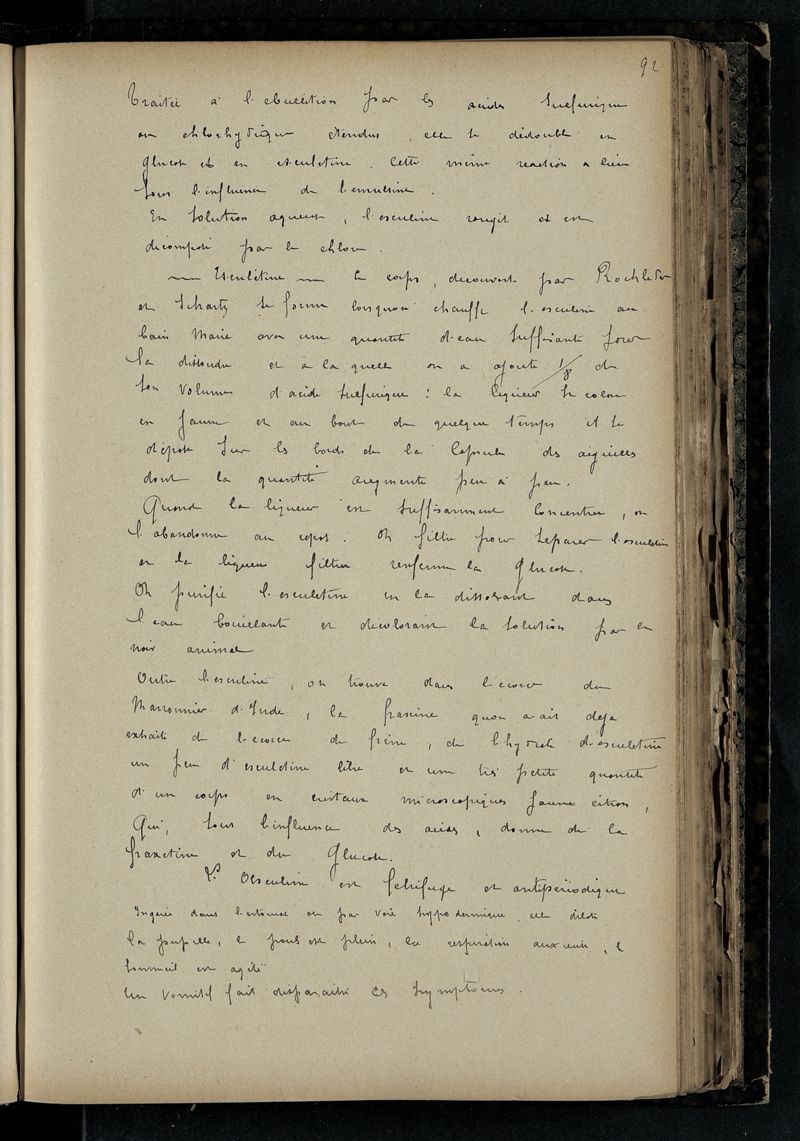 92
Traitée à l'ebullition par les acides Sulfurique
ou chlorhydrique étendus, elle se dédouble en
glucose et en esculetine. Cette même reaction a lieu
sous l'influence de l'emulsine.
En solution aqueuse, l'esculine rougit et est
decomposé par le chlore.
— Esculétine — Ce corps, decouvert par Rochleder
et Schwartz se forme lorsquon chauffe l'esculine au
bain Marie avec une quantité d'eau suffisante pour
la dissoudre et à la quelle on a ajouté 1/8 de
son Volume d'acide sulfurique : la liqueur se colore
en jaune et au bout de quelque temps il se
dépose sur les bords de la Capsule des aiguilles
dont la quantité augmente peu à peu.
Quand la liqueur est suffisamment Concentrée, on
l'abandonne au repos. On filtre pour séparer l'esculetine
et la liqueur filtrée renferme la Glucose.
On purifie l'esculetine en la dissolvant dans
l'eau bouillante et decolorant la solution par le
noir animal
Outre l'esculine, on trouve dans l'écorce du
Marronnier d'Inde, la fraxine quon avait déja
extraite de l'ecorce de frêne, de l'hydrate d'esculetine
un peu d'esculetine libre et une très petite quantité
d'un corps en cristaux microscopiques jaune citron,
Qui, sous l'influence des acides, donne de la
fraxetine et du Glucose.
Obsculine est febrifuge et antipériodique
Ingérée dans l'estomac ou par voie hypodermique, elle dilate
la pupille, le pouls est plein, la respiration anxieuse, le
sommeil est agité
Un Vomitif fait disparaitre ces symptomes.